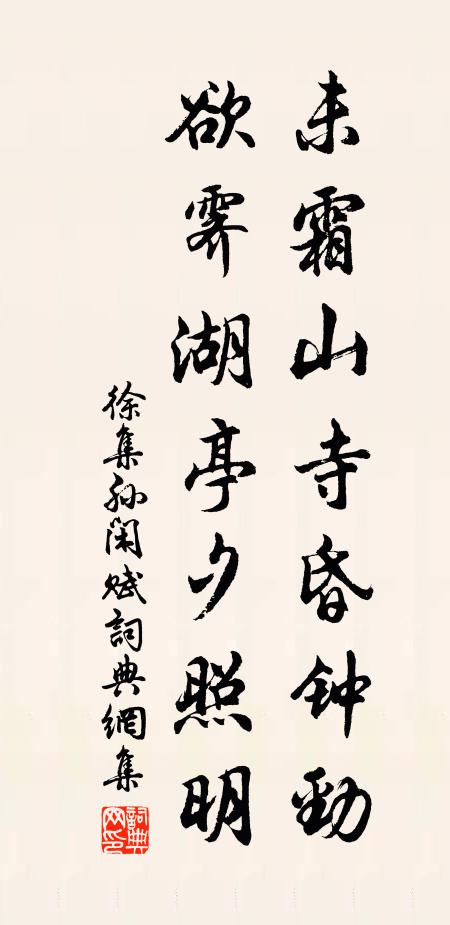 未霜山寺昏钟勁
欲霁湖亭夕照明
徐集孙闲赋詞典網集
詞典网印